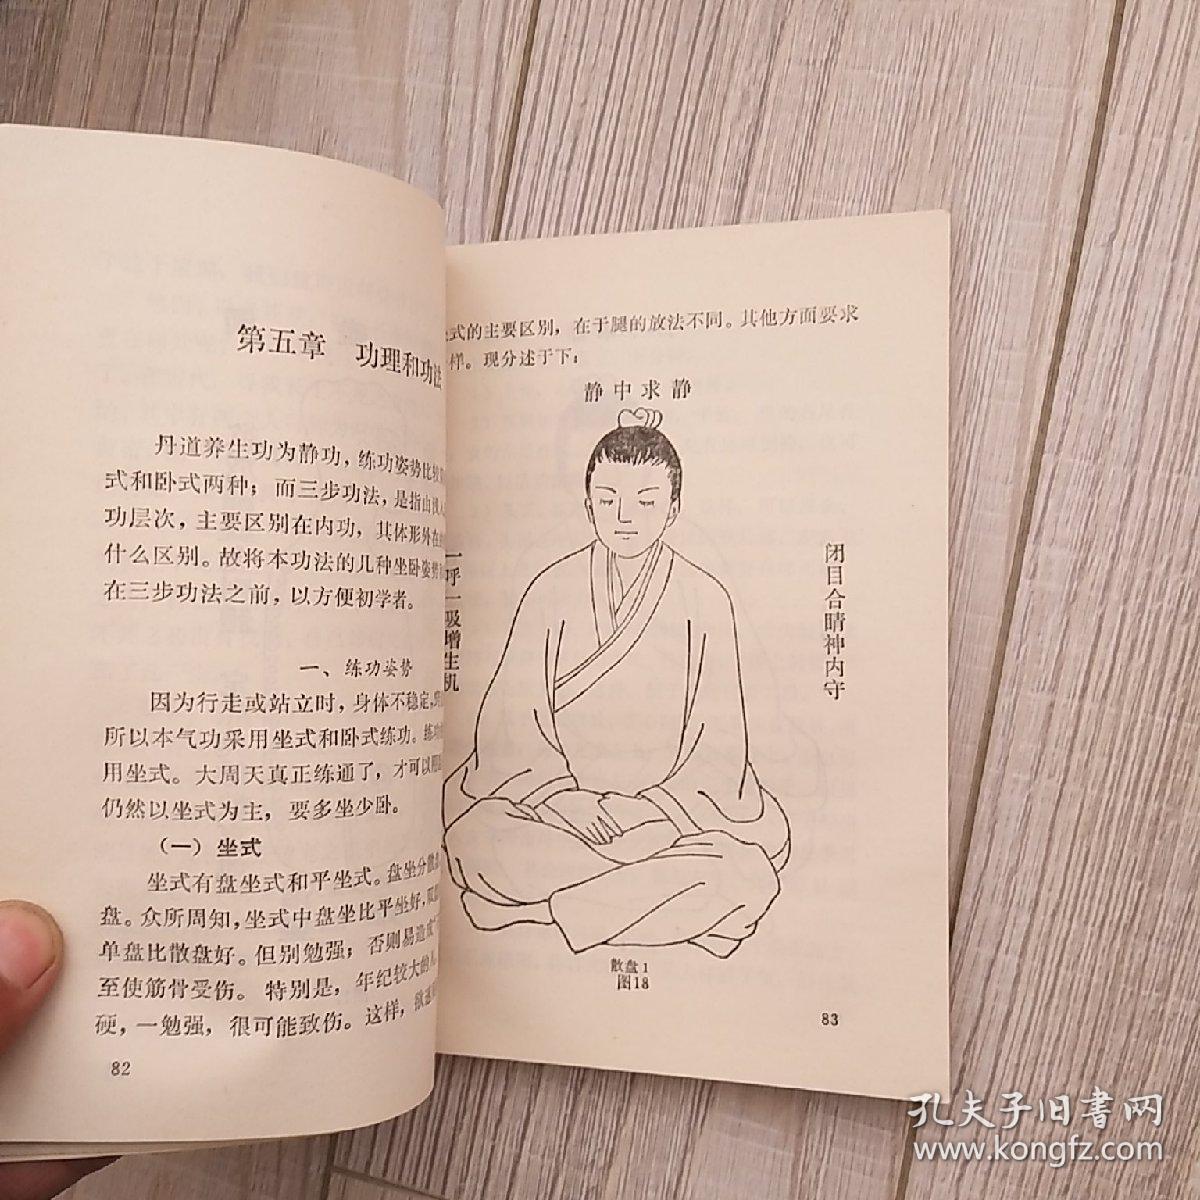 第五章 功理和功法
丹道养生功为静功，练功姿势比较
式和卧式两种；而三步功法，是指
功层次，主要区别在内功，其体形外在
什么区别。故将本功法的几种坐卧姿势
在三步功法之前，以方便初学者。
一、练功姿势
因为行走或站立时，身体不稳定，
所以本气功采用坐式和卧式练功。练功
用坐式。大周天真正练通了，才可以用
仍然以坐式为主，要多坐少卧。
（一）坐式
坐式有盘坐式和平坐式。盘坐分散
盘。众所周知，坐式中盘坐比平坐好，双
单盘比散盘好。但别勉强；否则易造成
至使筋骨受伤。特别是，年纪较大的人，
硬，一勉强，很可能致伤。这样，欲速
82
式的主要区别，在于腿的放法不同。其他方面要求
样。现分述于下：
静中求静
一呼一吸增生机
闭目合睛神内守
散盘1
图18
83
孔夫子旧書网
www.kongfz.com